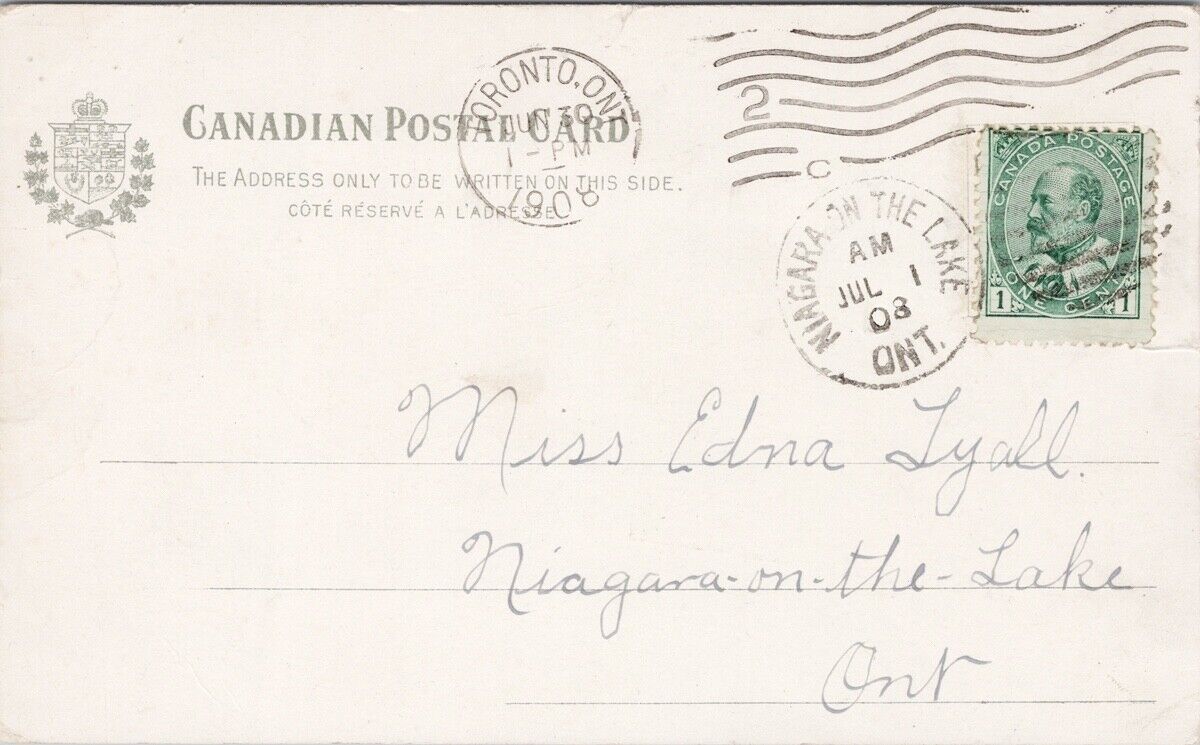 CANADIAN POSTAL CARD
THE ADDRESS ONLY TO BE WRITTEN ON THIS SIDE.
CÔTÉ RÉSERVÉ A L'ADRESSE
TORONTO, ONT
JUN 30
1 - PM
1908
2
C
NIAGARA ON THE LAKE
AM
JUL 1
08
ONT.
CANADA POSTAGE
1 ONE CENT 1
Miss Edna Lyall.
Niagara-on-the-Lake
Ont